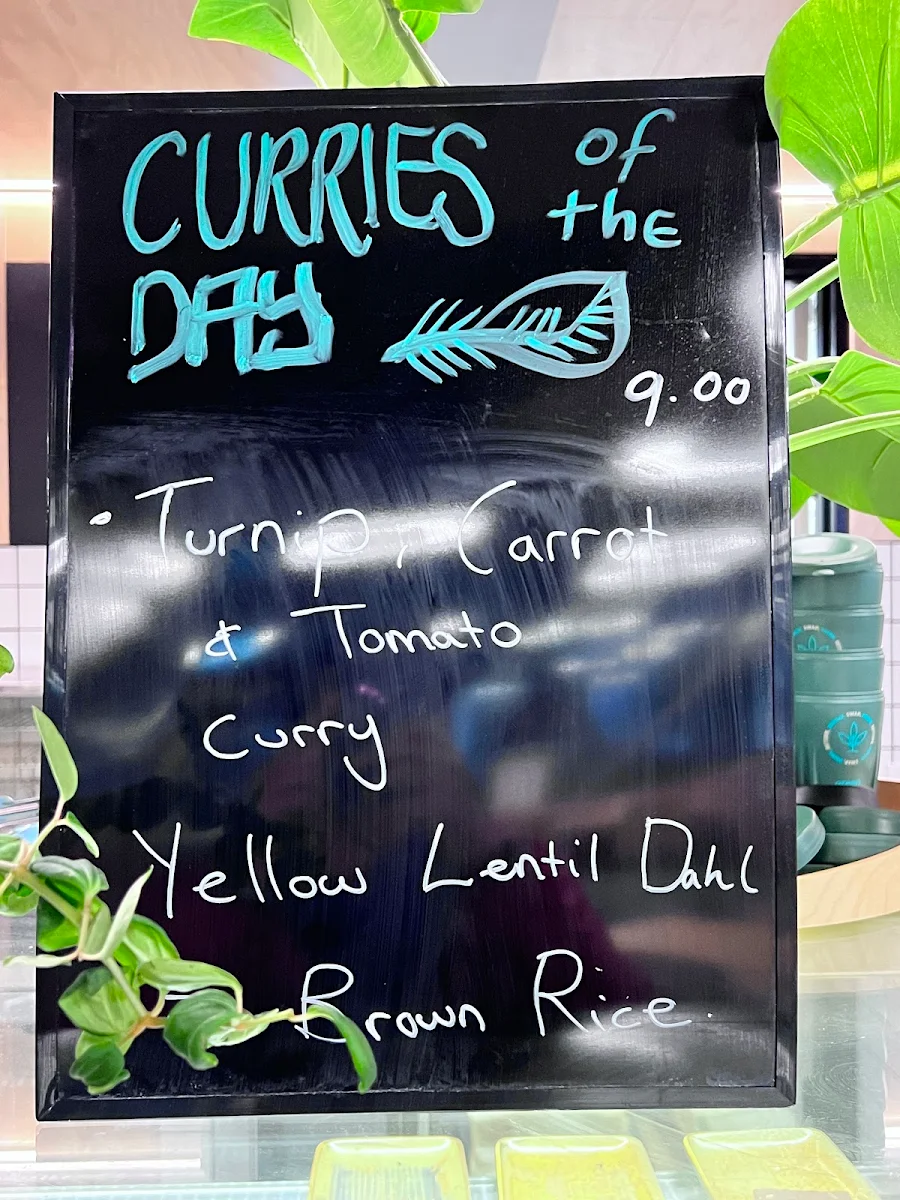 CURRIES of
the
DAY
9.00
• Turnip, Carrot
& Tomato
Curry
Yellow Lentil Dahl
Brown Rice.